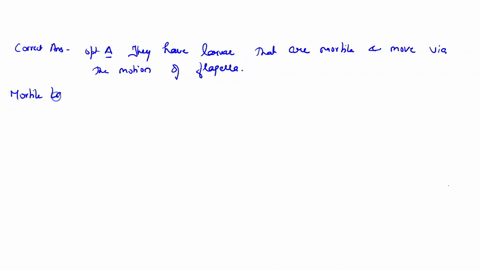 Correct Ans- opt A They have larvae that are mortile & move via
the motion of flagella.
Mortile